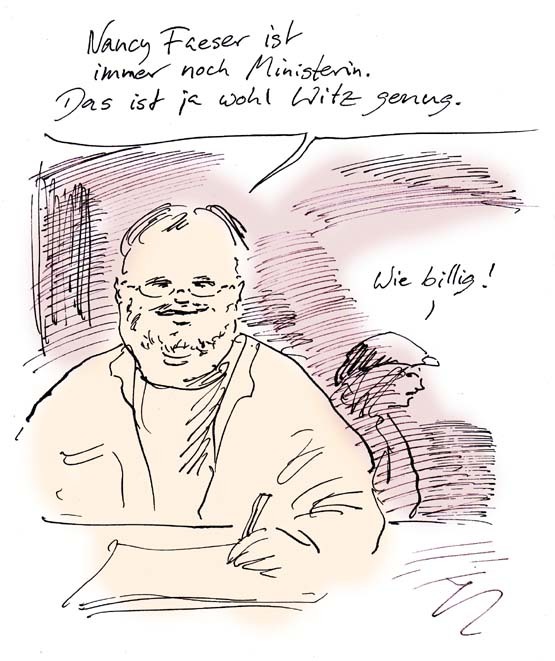 Nancy Faeser ist
immer noch Ministerin.
Das ist ja wohl Witz genug.
Wie billig!